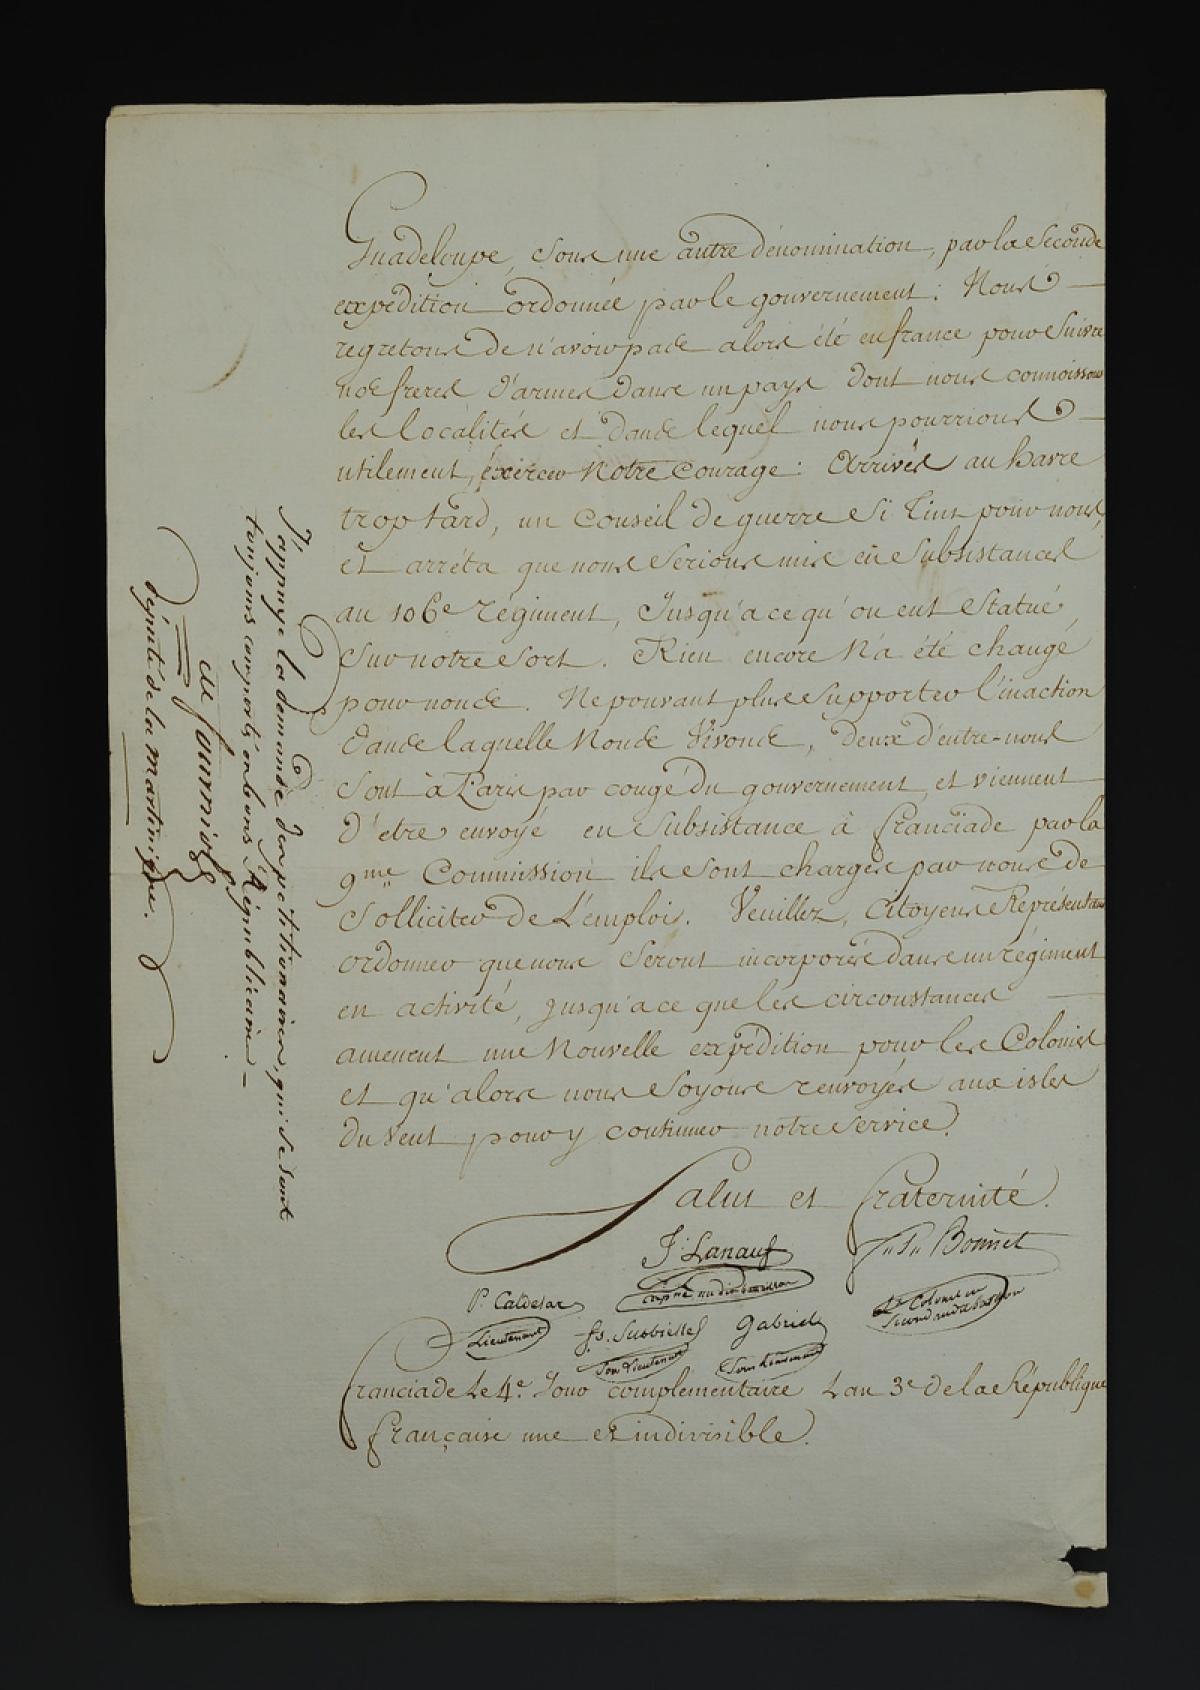 Guadeloupe, sous une autre dénomination, par la Seconde
expédition ordonnée par le gouvernement : Nous
regretons de n'avoir pas alors été en france pour Suivre
nos freres d'armes dans un pays dont nous connoissons
les localités et dans lequel nous pourrions
utilement, éxercer Notre Courage : Arrivés au havre
trop tard, un Conseil de guerre Si tint pour nous,
et arrêta que nous Serions mis en Subsistances
au 106e régiment, Jusqu'a ce qu'on eut Statué
Sur notre Sort. Rien encore N'a été changé
pour nous. Ne pouvant plus Supporter l'inaction
dans laquelle Nous Vivons, deux d'entre-nous
Sont à Paris par congé du gouvernement, et viennent
d'etre envoyé en Subsistance à franciade par la
9me Commission ils Sont chargés par nous de
Solliciter de L'emploi. Veuillez, Citoyens Représentans
ordonner que nous Seront incorporés dans un régiment
en activité, jusqu'a ce que les circonstances
amenent une Nouvelle expédition pour les Colonies
et qu'alors nous Soyons renvoyés aux isles
du Vent pour y continuer notre Service.
Salut et fraternité.
J. Lanauf
Bonnet
P. Caldesar
Lieutenant
fs. Susbielle
Sou Lieutenant
Gabriel
Sous Lieutenant
franciade Le 4e. Jour complémentaire L'an 3e de la République
française une et indivisible.
J'appuye la demande des petitionnaires, qui se sont
toujours comportés en bons Républicains
de fourniols
député de la martinique.